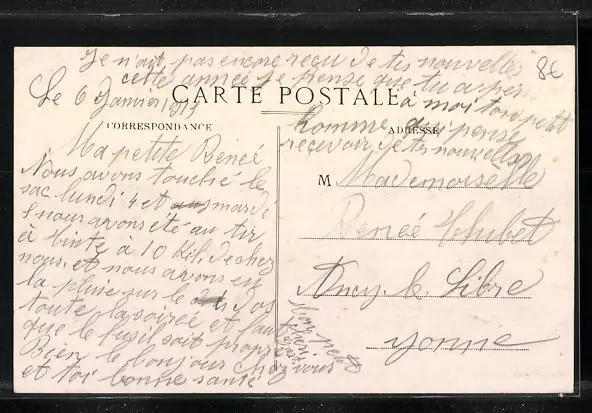 Je n'ait pas encore recu de tes nouvelles
cette année je pense que tu a pens
à moi ton petit
homme qui pense
recevoir de tes nouvelles
8€
Le 6 Janvier
CARTE POSTALE
CORRESPONDANCE
ADRESSE
Ma petite Reneé
Nous avons touché le
sac lundi 4 et mardi
5 nous avons été au tir
à binte à 10 Kil. de chez
nous. et nous avons eu
la pluie sur le dos
toute la soirée et faut
que le fusil soit propre
Bien le bonjour chez vous
et toi bonne santé
ton petit
M Mademoiselle
Reneé
Ancy. le Libre
yonne